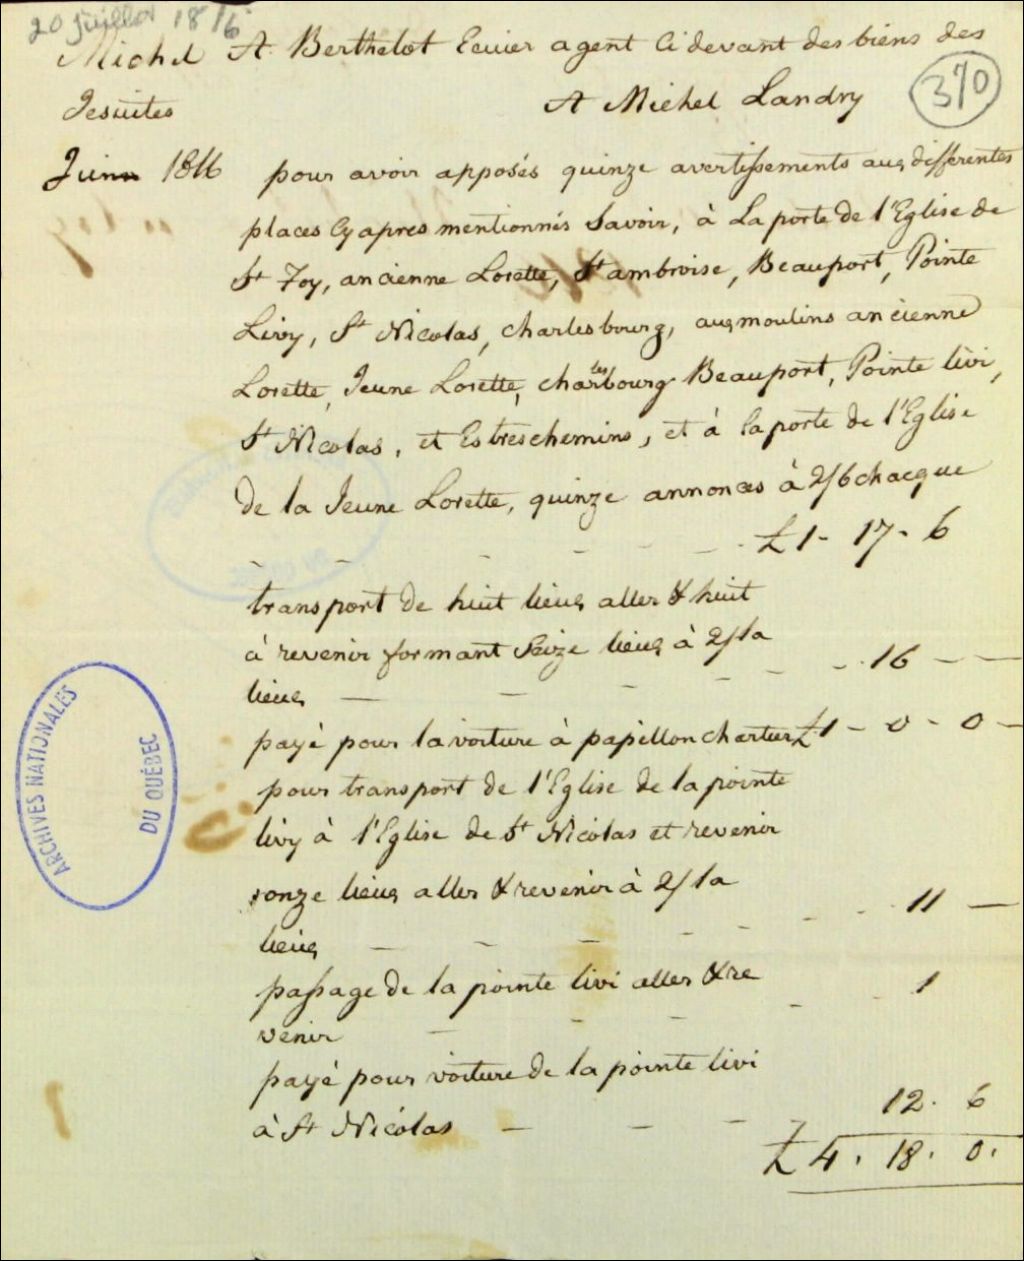 20 juillet 1816
Michel A. Berthelot Ecuier agent Ci devant des biens des
Jesuites A Michel Landry
370
Juin 1816 pour avoir apposés quinze avertissements aux differentes
places Cy apres mentionnés Savoir, à La porte de l'Eglise de
St Foy, ancienne Lorette, St ambroise, Beauport, Pointe
Livy, St Nicolas, Charlesbourg, aux moulins ancienne
Lorette, Jeune Lorette, charlesbourg Beauport, Pointe livi,
St Nicolas, et Es treschemins, et à la porte de l'Eglise
de la Jeune Lorette, quinze annonces à 2/6 chacque
£ 1 - 17 - 6
transport de huit lieux aller & huit
à revenir formant Seize lieux à 1/ la
lieux — 16 —
payé pour la voiture à papillon chartier £ 1 - 0 - 0 -
pour transport de l'Eglise de la pointe
livy à l'Eglise de St Nicolas et revenir
onze lieux aller & revenir à 1/ la
lieux — 11 —
passage de la pointe livi aller & re
venir — 1
payé pour voiture de la pointe livi
à St Nicolas — 12 . 6
£ 4 . 18 . 0 .
ARCHIVES NATIONALES
DU QUÉBEC